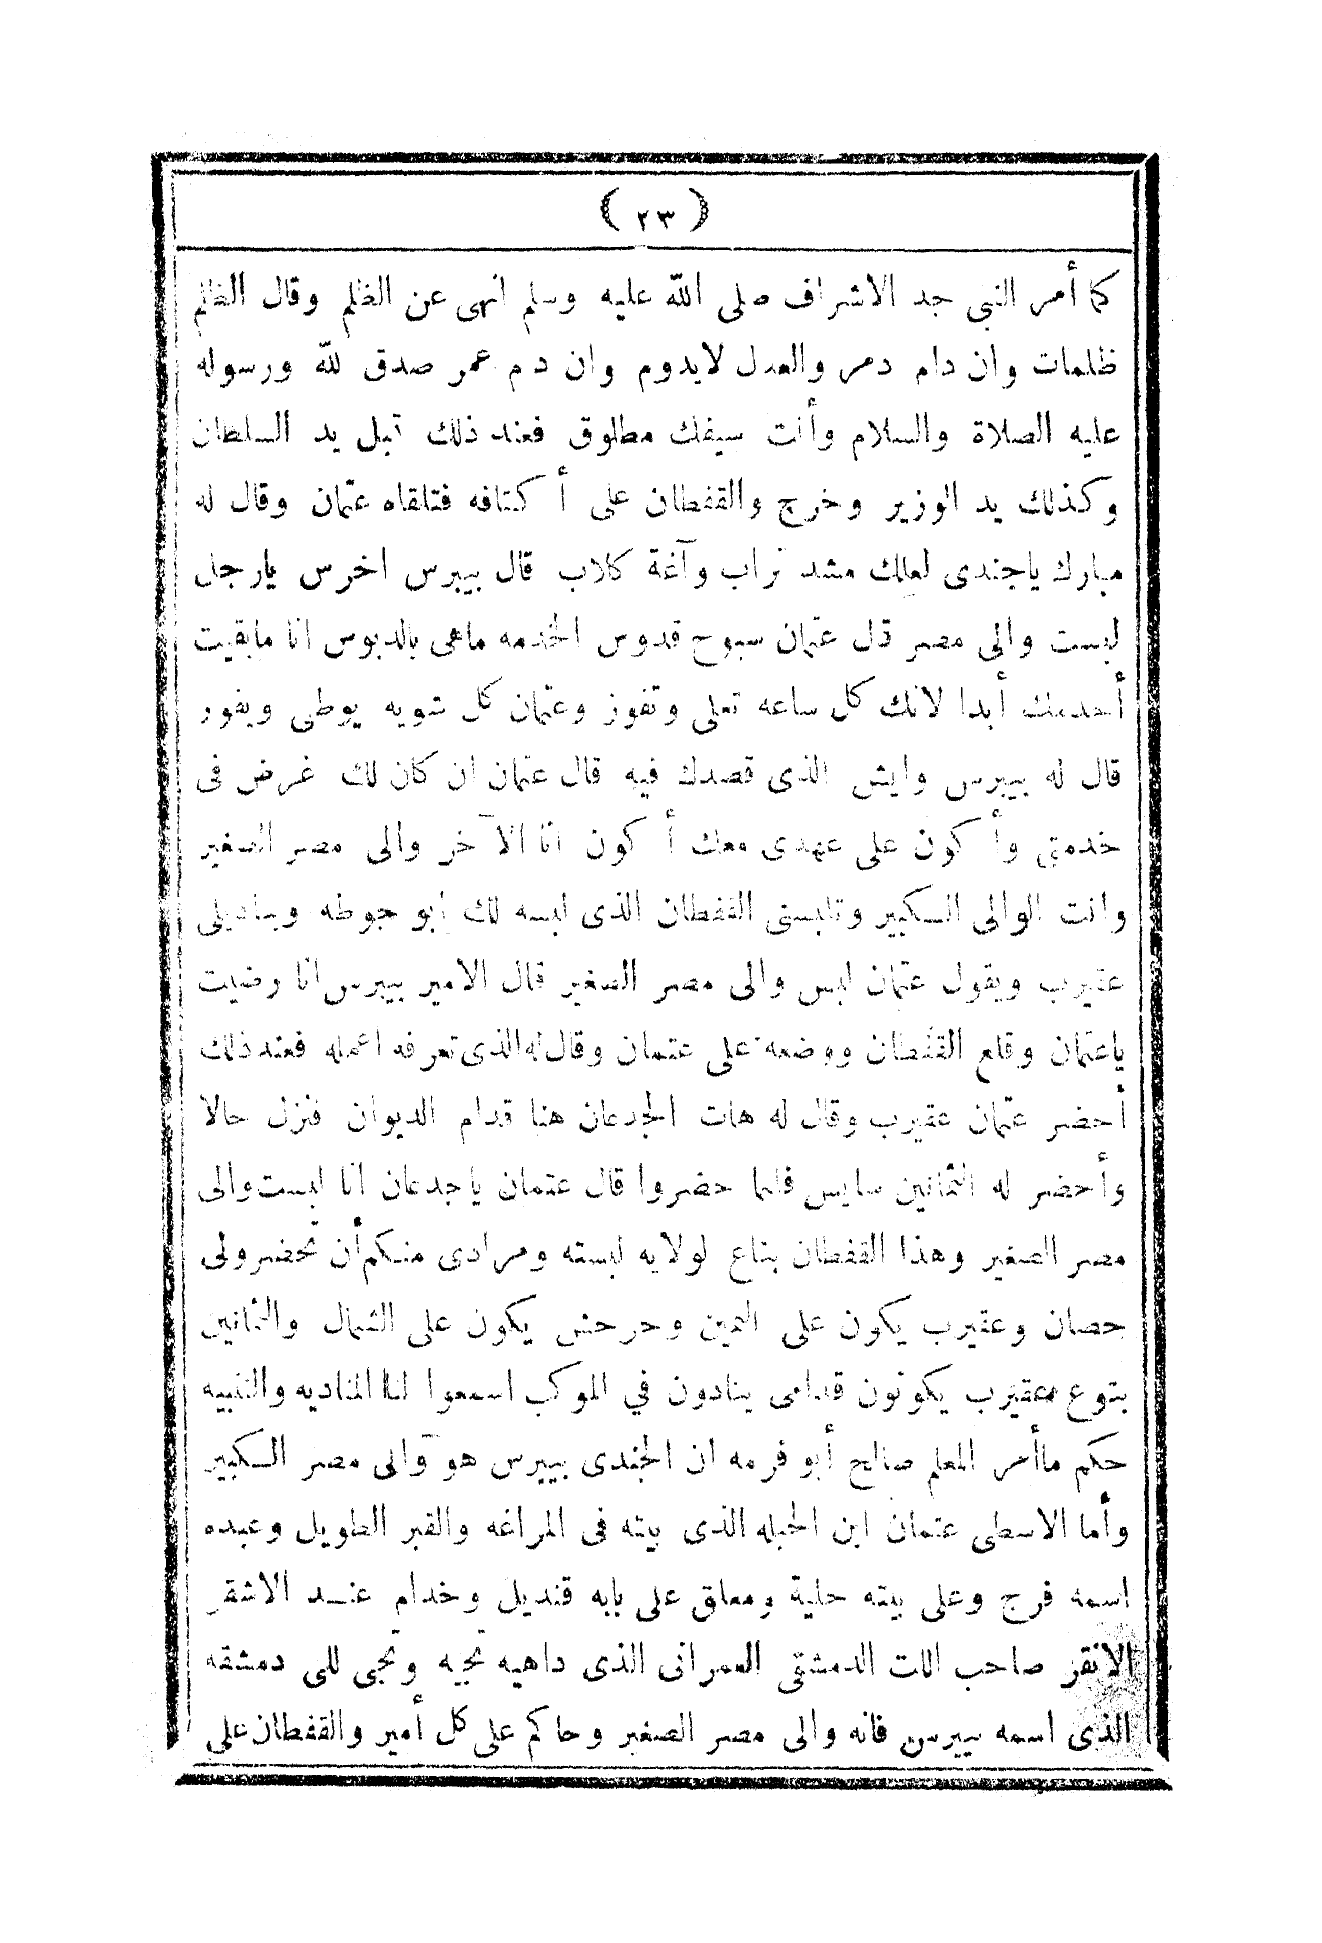 ( ٢٣ )
كما أمر النبى جد الاشراف صلى الله عليه وسلم انهى عن الظلم وقال الظلم
ظلمات وان دام دمر والعدل لايدوم وان دم عمر صدق لله ورسوله
عليه الصلاة والسلام وأنت سيفك مطلوق فعند ذلك قبل يد السلطان
وكذلك يد الوزير وخرج والقفطان على أكتافه فتلقاه عثمان وقال له
مبارك ياجندى لعلك مشد تراب وآغة كلاب قال بيبرس اخرس يارجل
لبست والى مصر قال عثمان سبوح قدوس الخدمه ماهى بالدبوس انا مابقيت
أخدمك أبدا لانك كل ساعه تعلى وتفوز وعثمان كل شويه يوطى ويغور
قال له بيبرس وايش الذى قصدك فيه قال عثمان ان كان لك غرض فى
خدمتى وأكون على عهدى معك أكون انا الآخر والى مصر الصغير
وانت الوالى الكبير وتلبسنى القفطان الذى لبسه لك أبو جوطه ويناديلى
عقيرب ويقول عثمان لبس والى مصر الصغير قال الامير بيبرس انا رضيت
ياعثمان وقلع القفطان ووضعه على عثمان وقال له الذى تعرفه اعمله فعند ذلك
أحضر عثمان عقيرب وقال له هات الجدعان هنا قدام الديوان فنزل حالا
وأحضر له الثمانين سايس فلما حضروا قال عثمان ياجدعان انا لبست والى
مصر الصغير وهذا القفطان بتاع لولايه لبسته ومرادى منكم أن تحضرولى
حصان وعقيرب يكون على اليمين وحرحش يكون على الشمال والثمانين
بتوع عقيرب يكونون قدامى ينادون في الموكب اسمعوا لنا المناديه والتنبيه
حكم ماأمر المعلم صالح أبو فرمه ان الجندى بيبرس هو والى مصر الكبير
وأما الاسطى عثمان ابن الحبله الذى بيته فى المراغه والقبر الطويل وعبده
اسمه فرج وعلى بيته حلية ومعلق على بابه قنديل وخدام عند الاشقر
الانقر صاحب اللت الدمشقى العمرانى الذى داهيه تجيه وتجى للى دمشقه
الذى اسمه بيبرس فانه والى مصر الصغير وحاكم على كل أمير والقفطان على